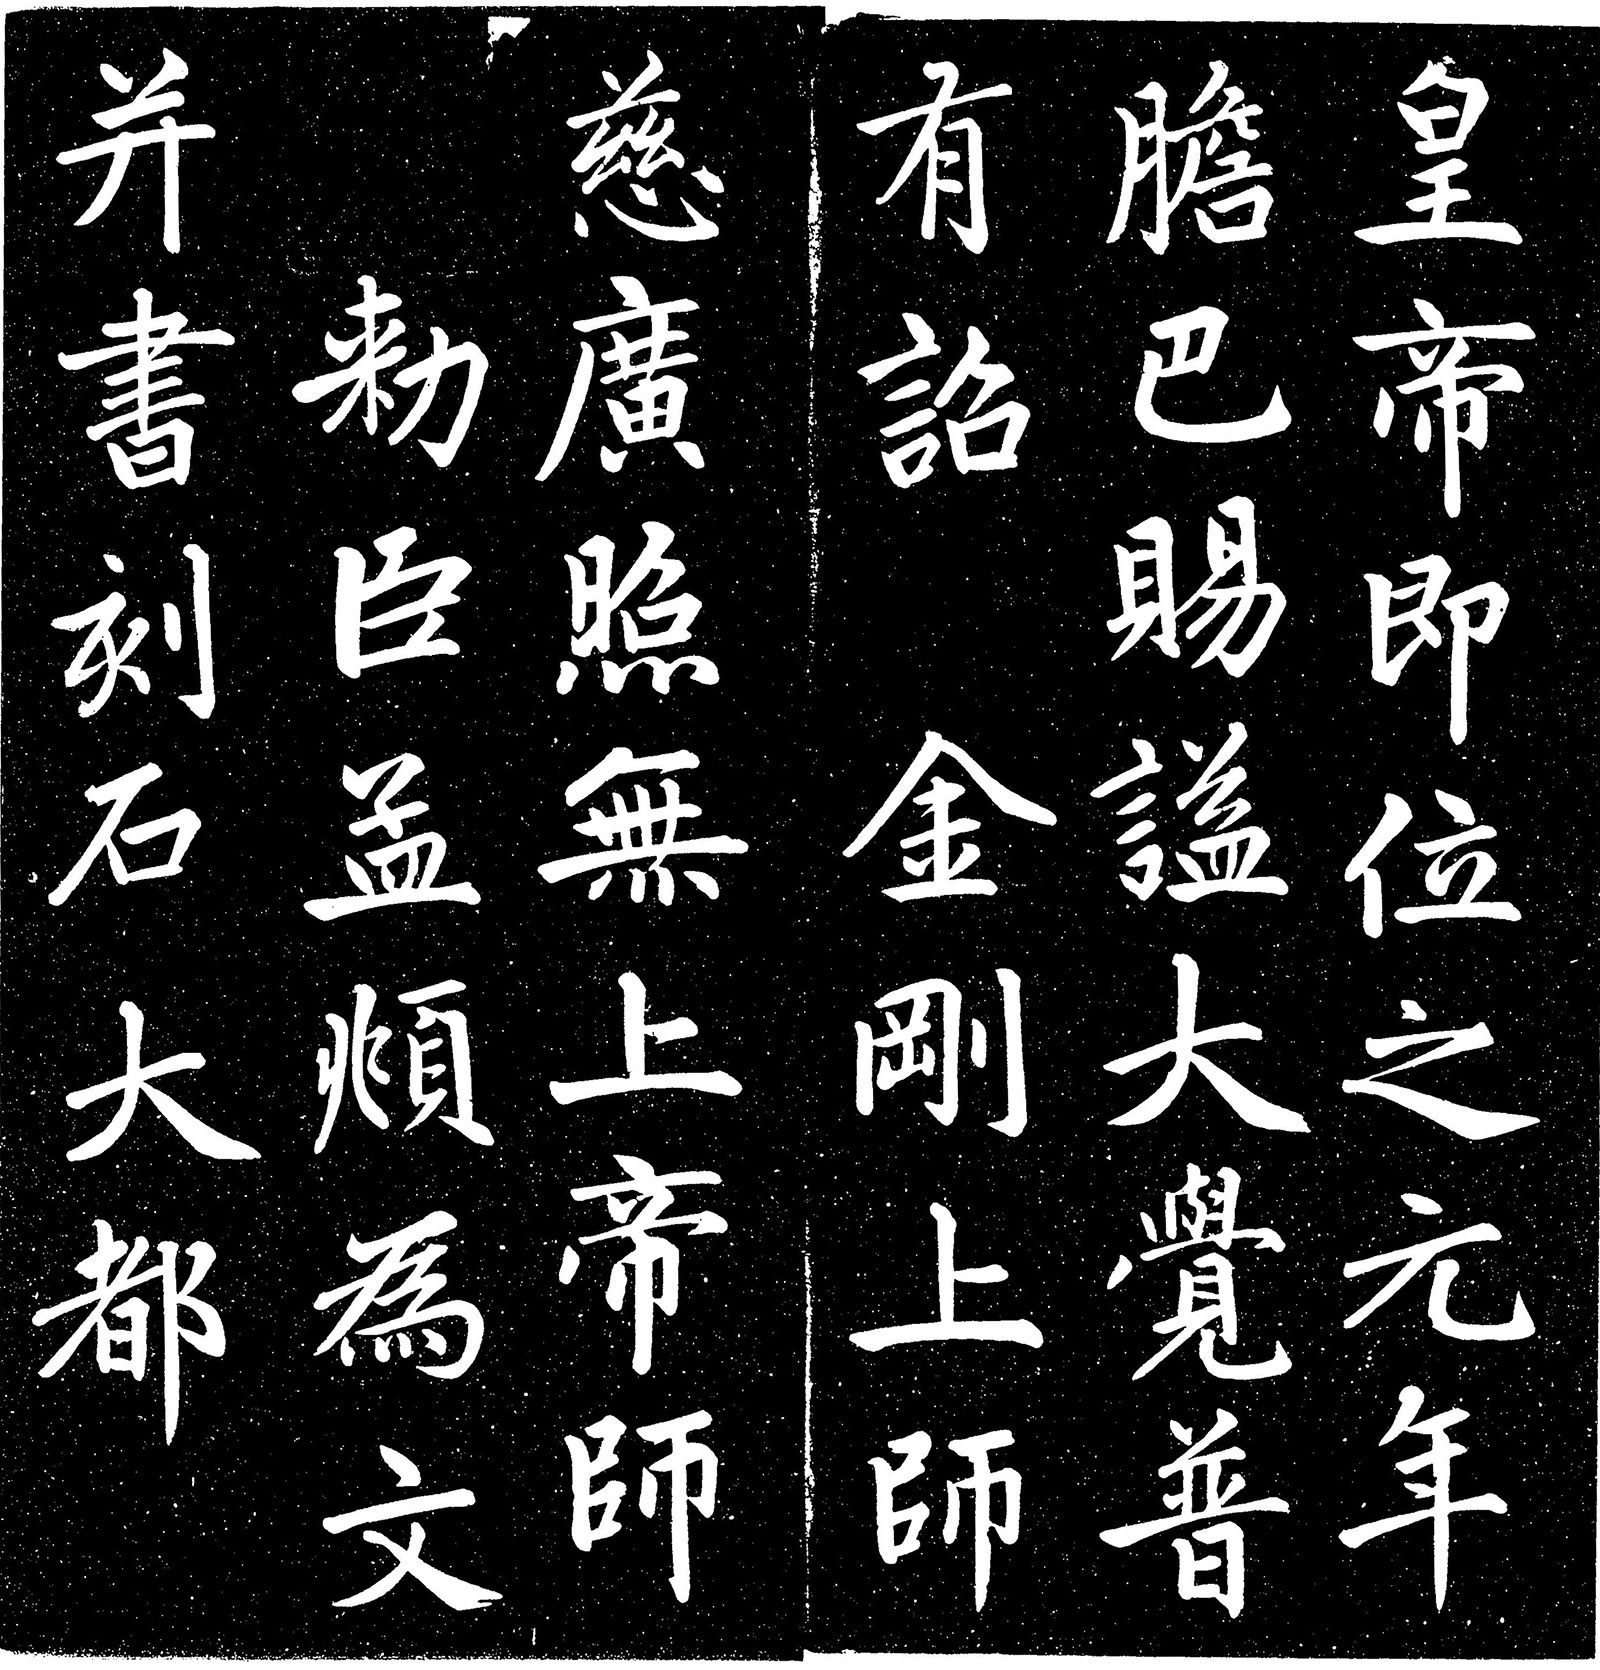 皇帝即位之元年
有詔 金剛上師
膽巴賜謚大覺普
慈廣照無上帝師
勅臣孟頫為文
并書刻石大都